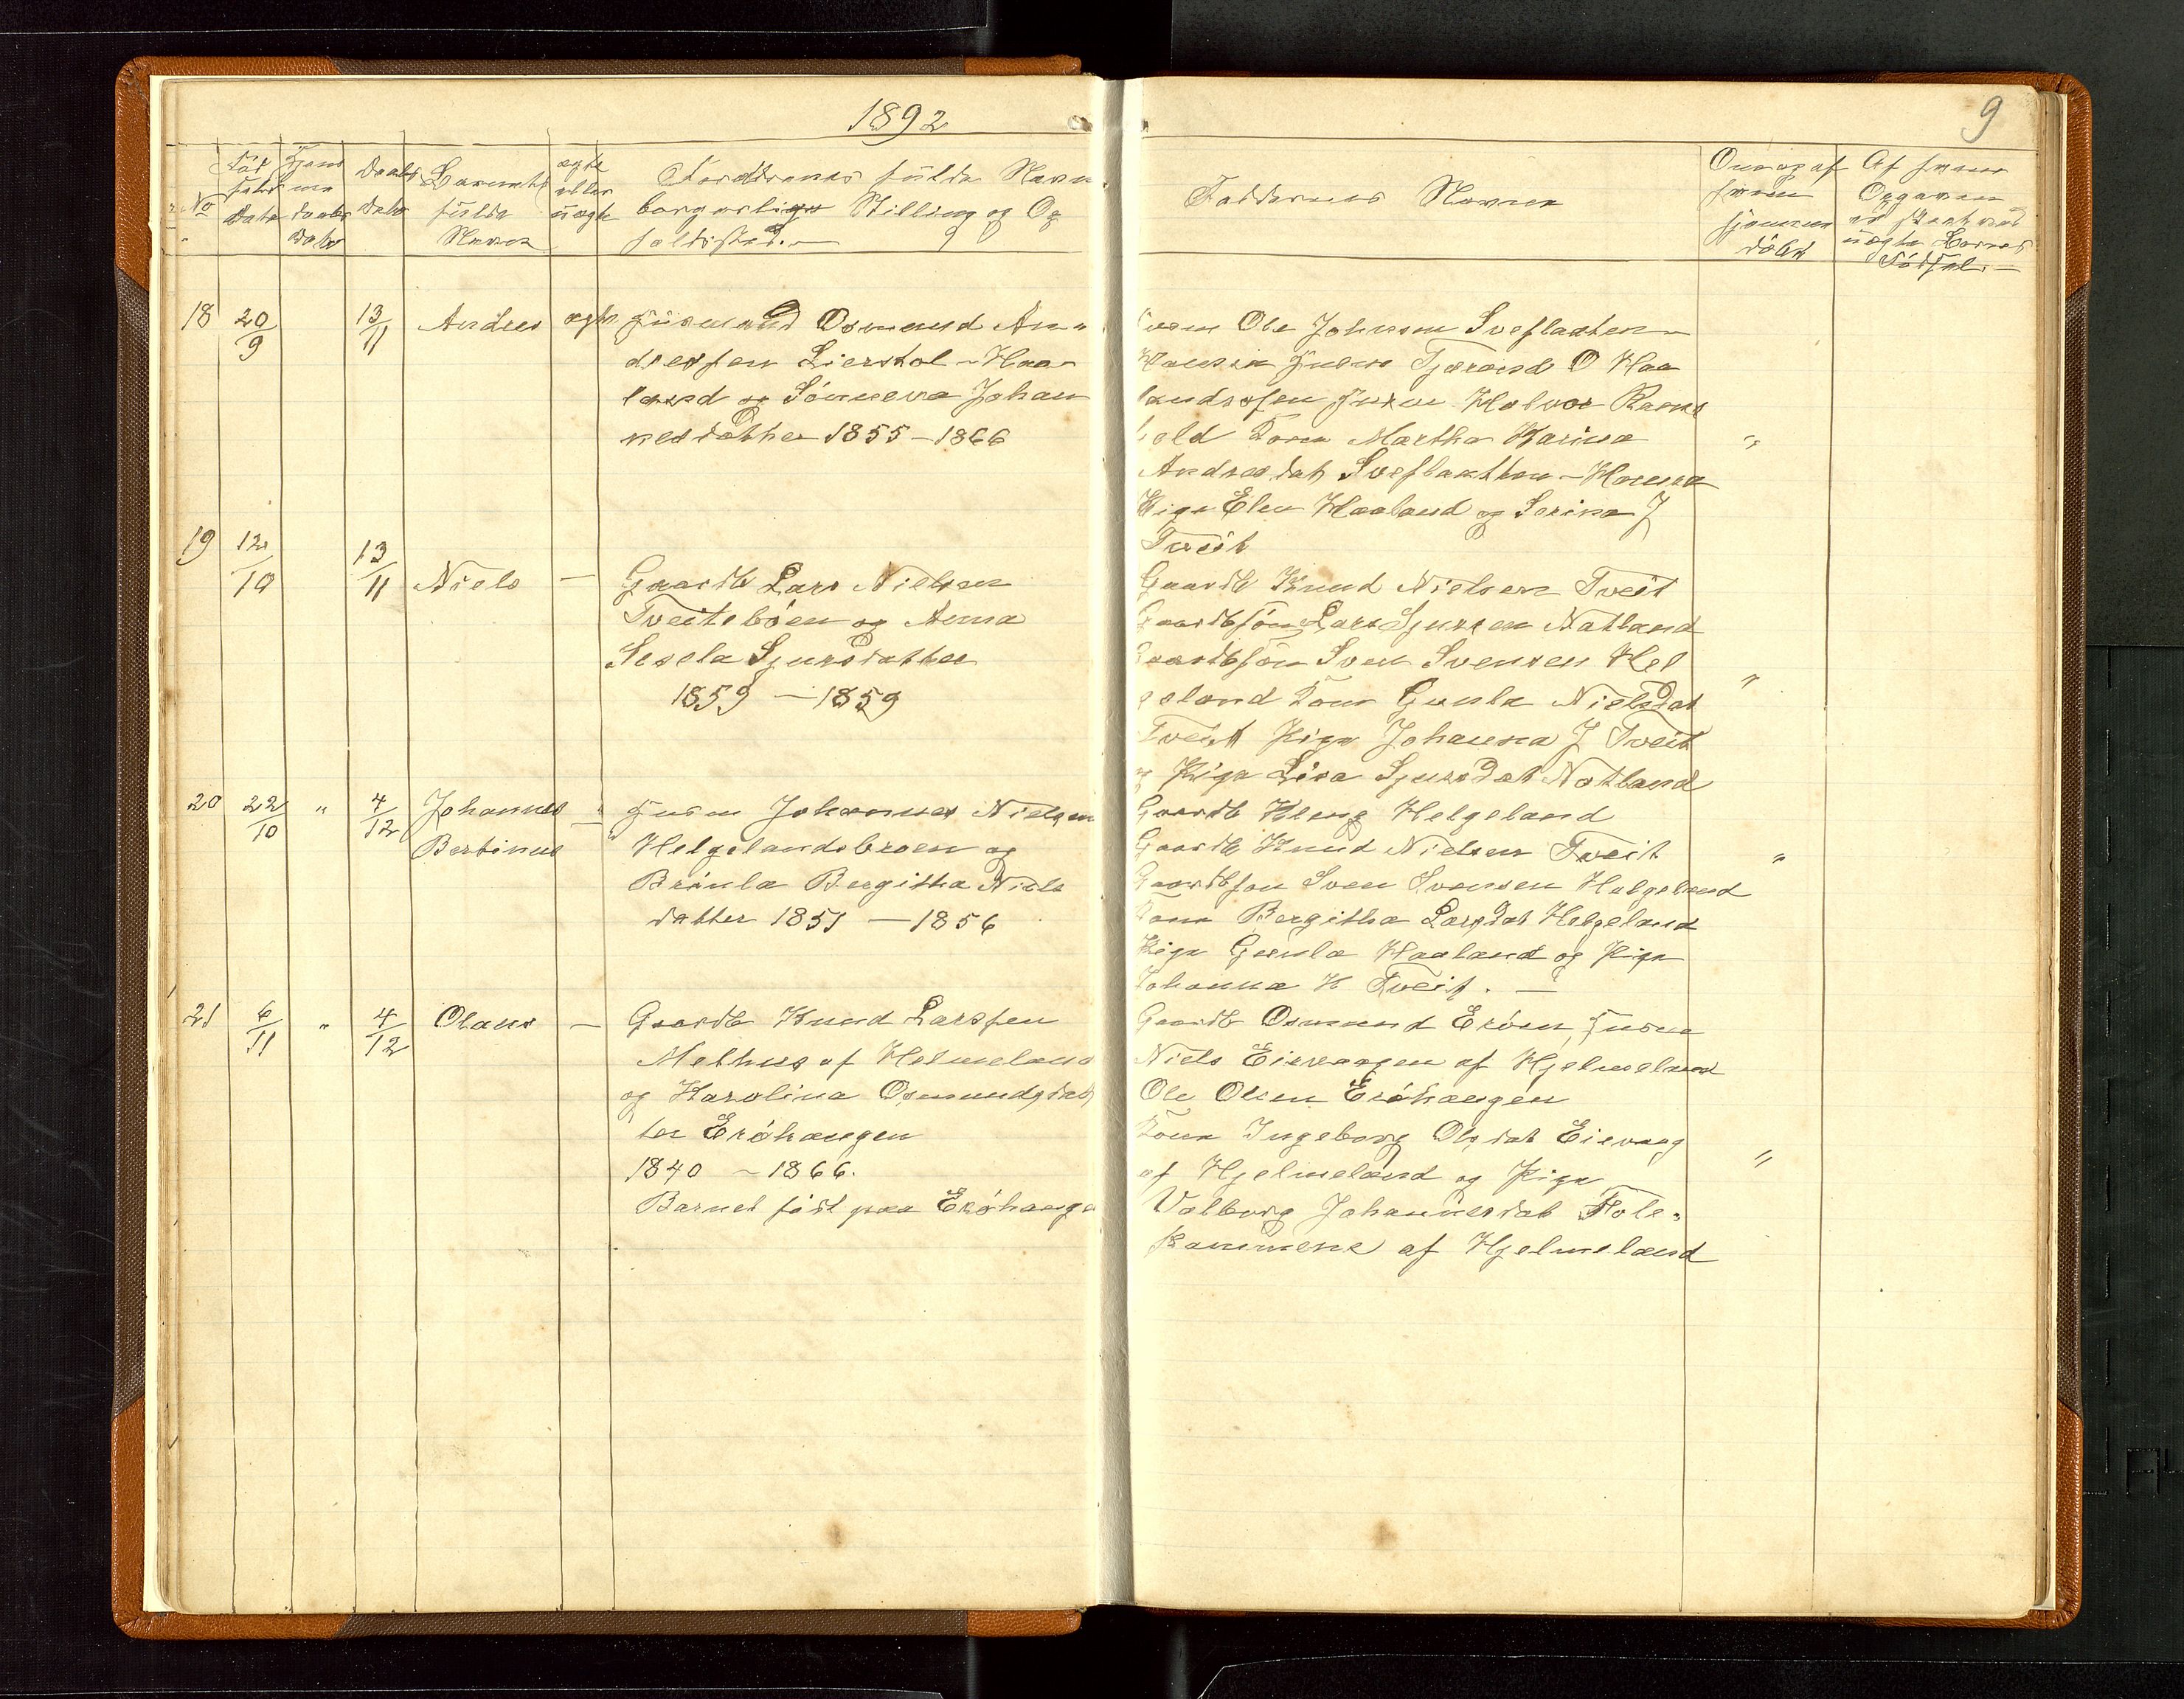 1892
9
No
Daabs
Dato
Barnets
fulde
Navn
ægte
eller
uægte
Forældrenes fulde Navn
borgerlige Stilling og Op
holdssted.
Faddernes Navne
18 20/9 13/11 Andreas ægte Huusmand Osmund An-
dreassen Lierstøl - Haa-
land og Sønneva Johan
nesdatter 1855 - 1866
Ole Johnsen
Tjærand O Haa
Halvor
Martha Karina
Andreasdat
Pige Elen Haaland og Serina J
Tveit
"
19 12/10 13/11 Niels — Gaardb Lars Nielsen
Tveitebøen og Anna
Sesela Sjursdatter
1859 — 1859
Gaardb Knud Nielsen Tveit
Gaardbsøn Lars Sjursen Natland
Gaardbsøn Sven Svensen Hel
geland Kone Gunla Nielsdat
Tveit Pige Johanna J Tveit
og Pige Lisa Sjursdat Natland
"
20 22/10 " 4/12 Johannes
Bertinus — Huusm Johannes Nielsen
Helgelandsbroen og
Brønla Bergitha Niels
datter 1851 — 1856
Gaardb Kleng Helgeland
Gaardb Knud Nielsen Tveit
Gaardbsøn Sven Svensen Helgeland
Kone Bergitha Larsdat Helgeland
Pige Gunla Haaland og Pige
Johanna K Tveit. —
"
21 6/11 " 4/12 Olaus — Gaardb Knud Larssen
Melhus af Helmeland
og Karolina Osmundsdat
ter Erøhaugen
1840 - 1866.
Barnet født paa Erøhauge
Gaardb Osmund Erøen, Huusm
Niels Eievaagen af Hjelmeland
Ole Olsen Erøhaugen
Kone Ingeborg Olsdat Eievaag
af Hjelmeland og Pige
Valborg Johannesdat Fole-
kammene af Hjelmeland
"